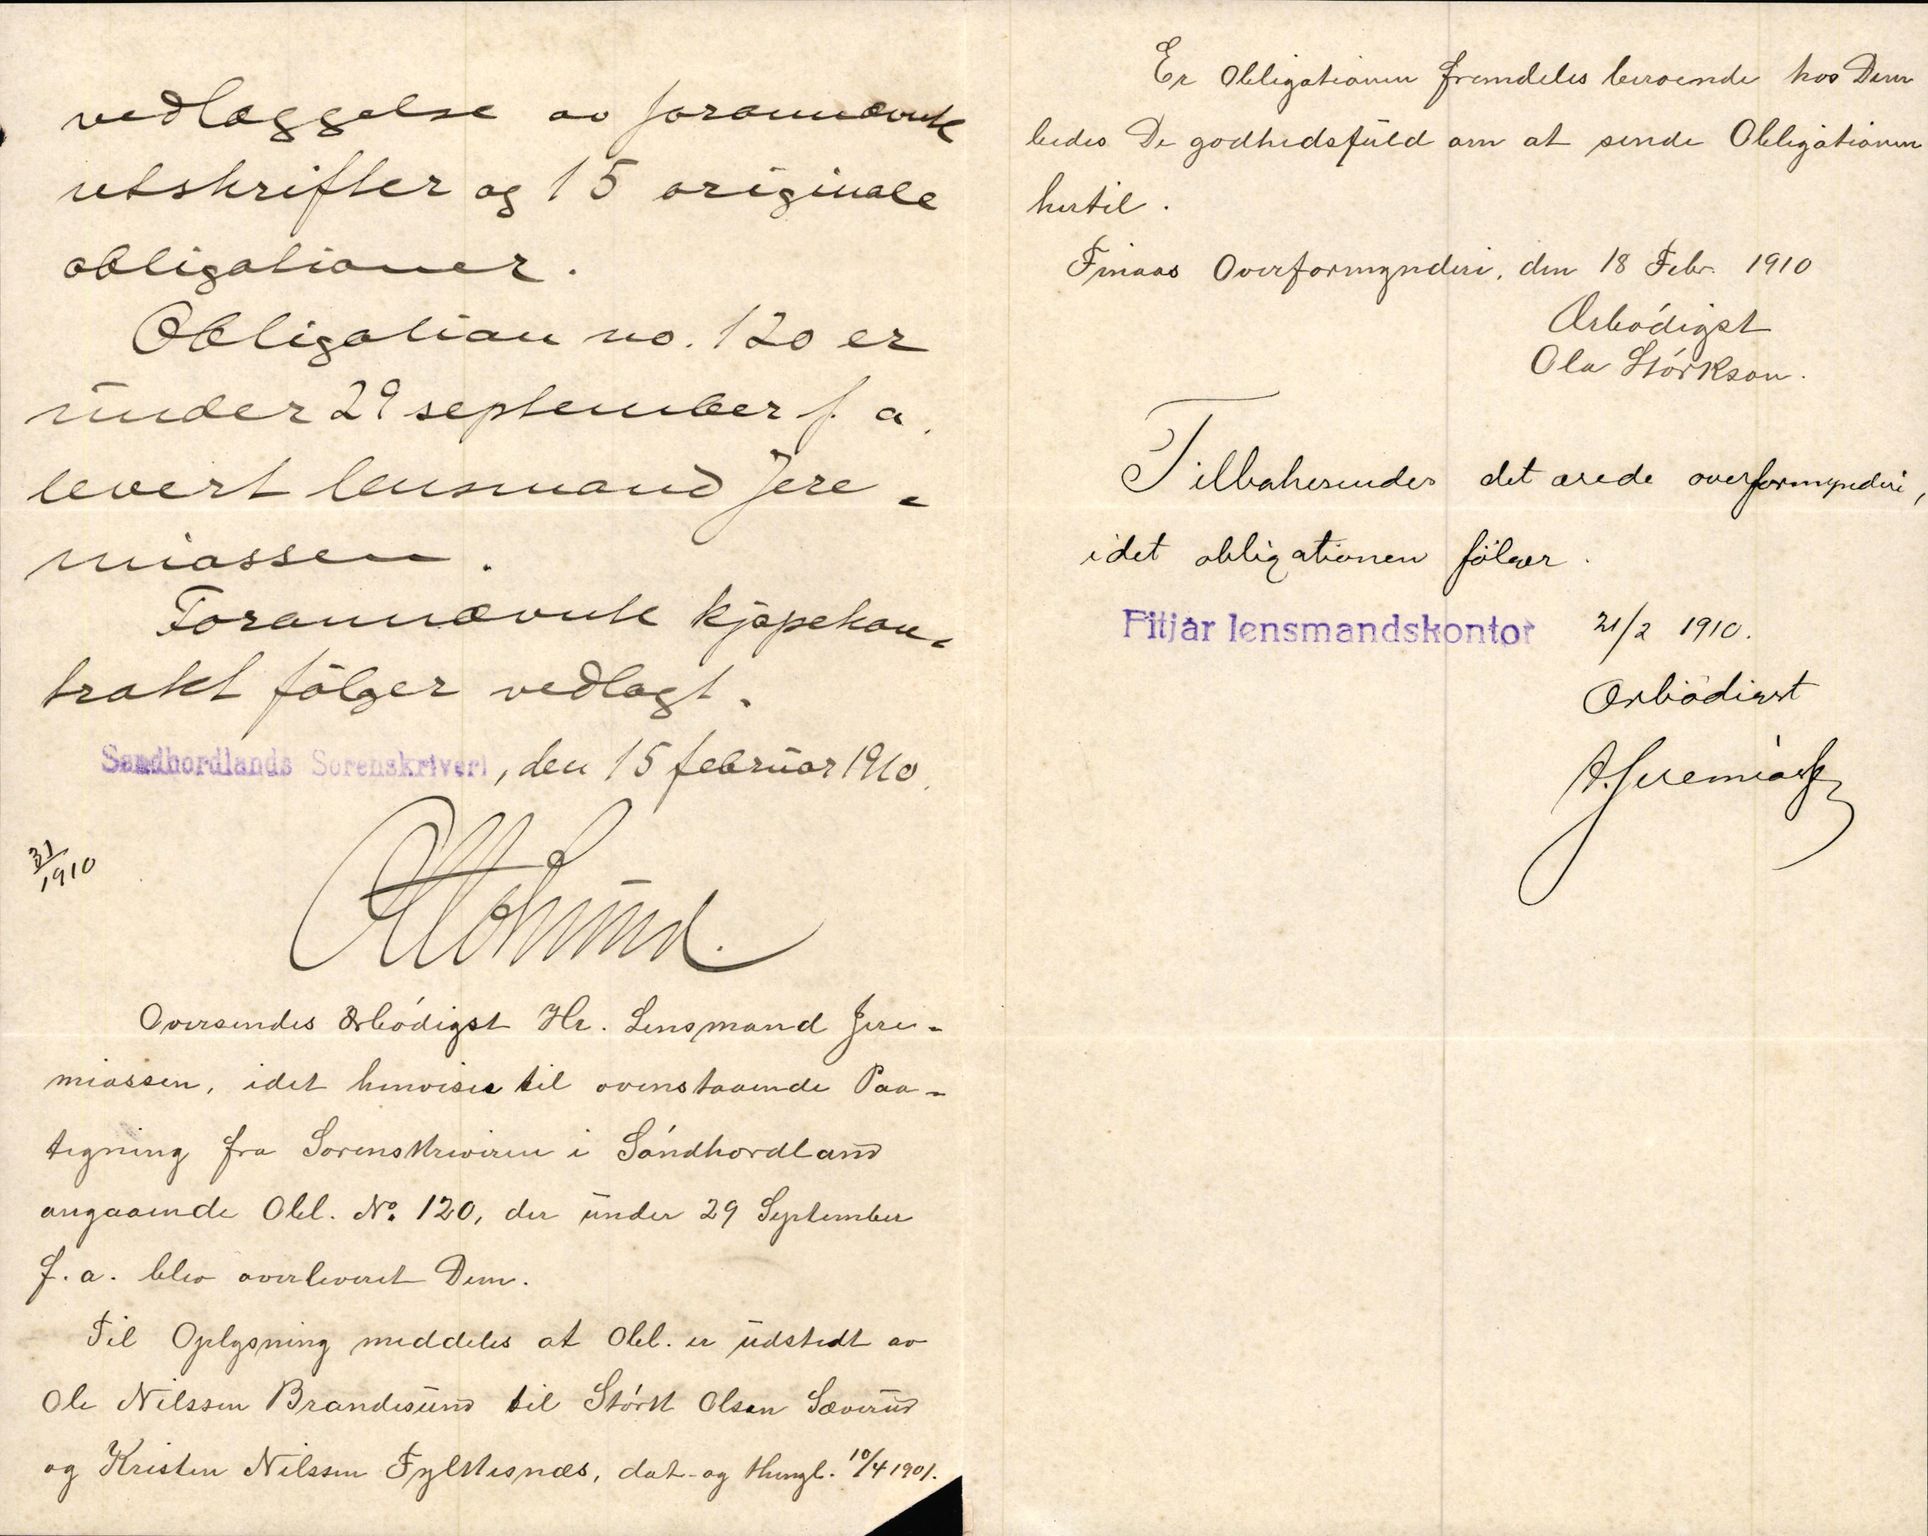 vedlæggelse av forannævnte
utskrifter og 15 originale
obligationer.
Obligation no. 120 er
under 29 september f. a.
levert lensmand Jere-
miassen.
Forannævnte kjøpekon-
trakt følger vedlagt.
Søndhordlands Sorenskriveri, den 15 februar 1910.
31/1910
Oversendes ærbødigst Hr. Lensmand Jere-
miassen, idet henvises til ovenstaaende Paa-
tegning fra Sorenskriveren i Søndhordland
angaaende Obl. No. 120, der under 29 September
f. a. blev overleveret Dem.
Til Oplysning meddeles at Obl. er udstedt av
Ole Nilssen Brandesund til Størk Olsen Sæverud
og Kristen Nilssen Fylkesnæs, dat. og thingl. 10/4 1901.
Er Obligationen fremdeles beroende hos Dem
bedes De godhedsfuld om at sende Obligationen
hertil.
Finaas Overformynderi, den 18 Febr. 1910
Ærbødigst
Ola Størkson.
Tilbakesendes det ærede overformynderi,
idet obligationen følger.
Fitjar lensmandskontor 21/2 1910.
Ærbødigst
A. Jeremiass